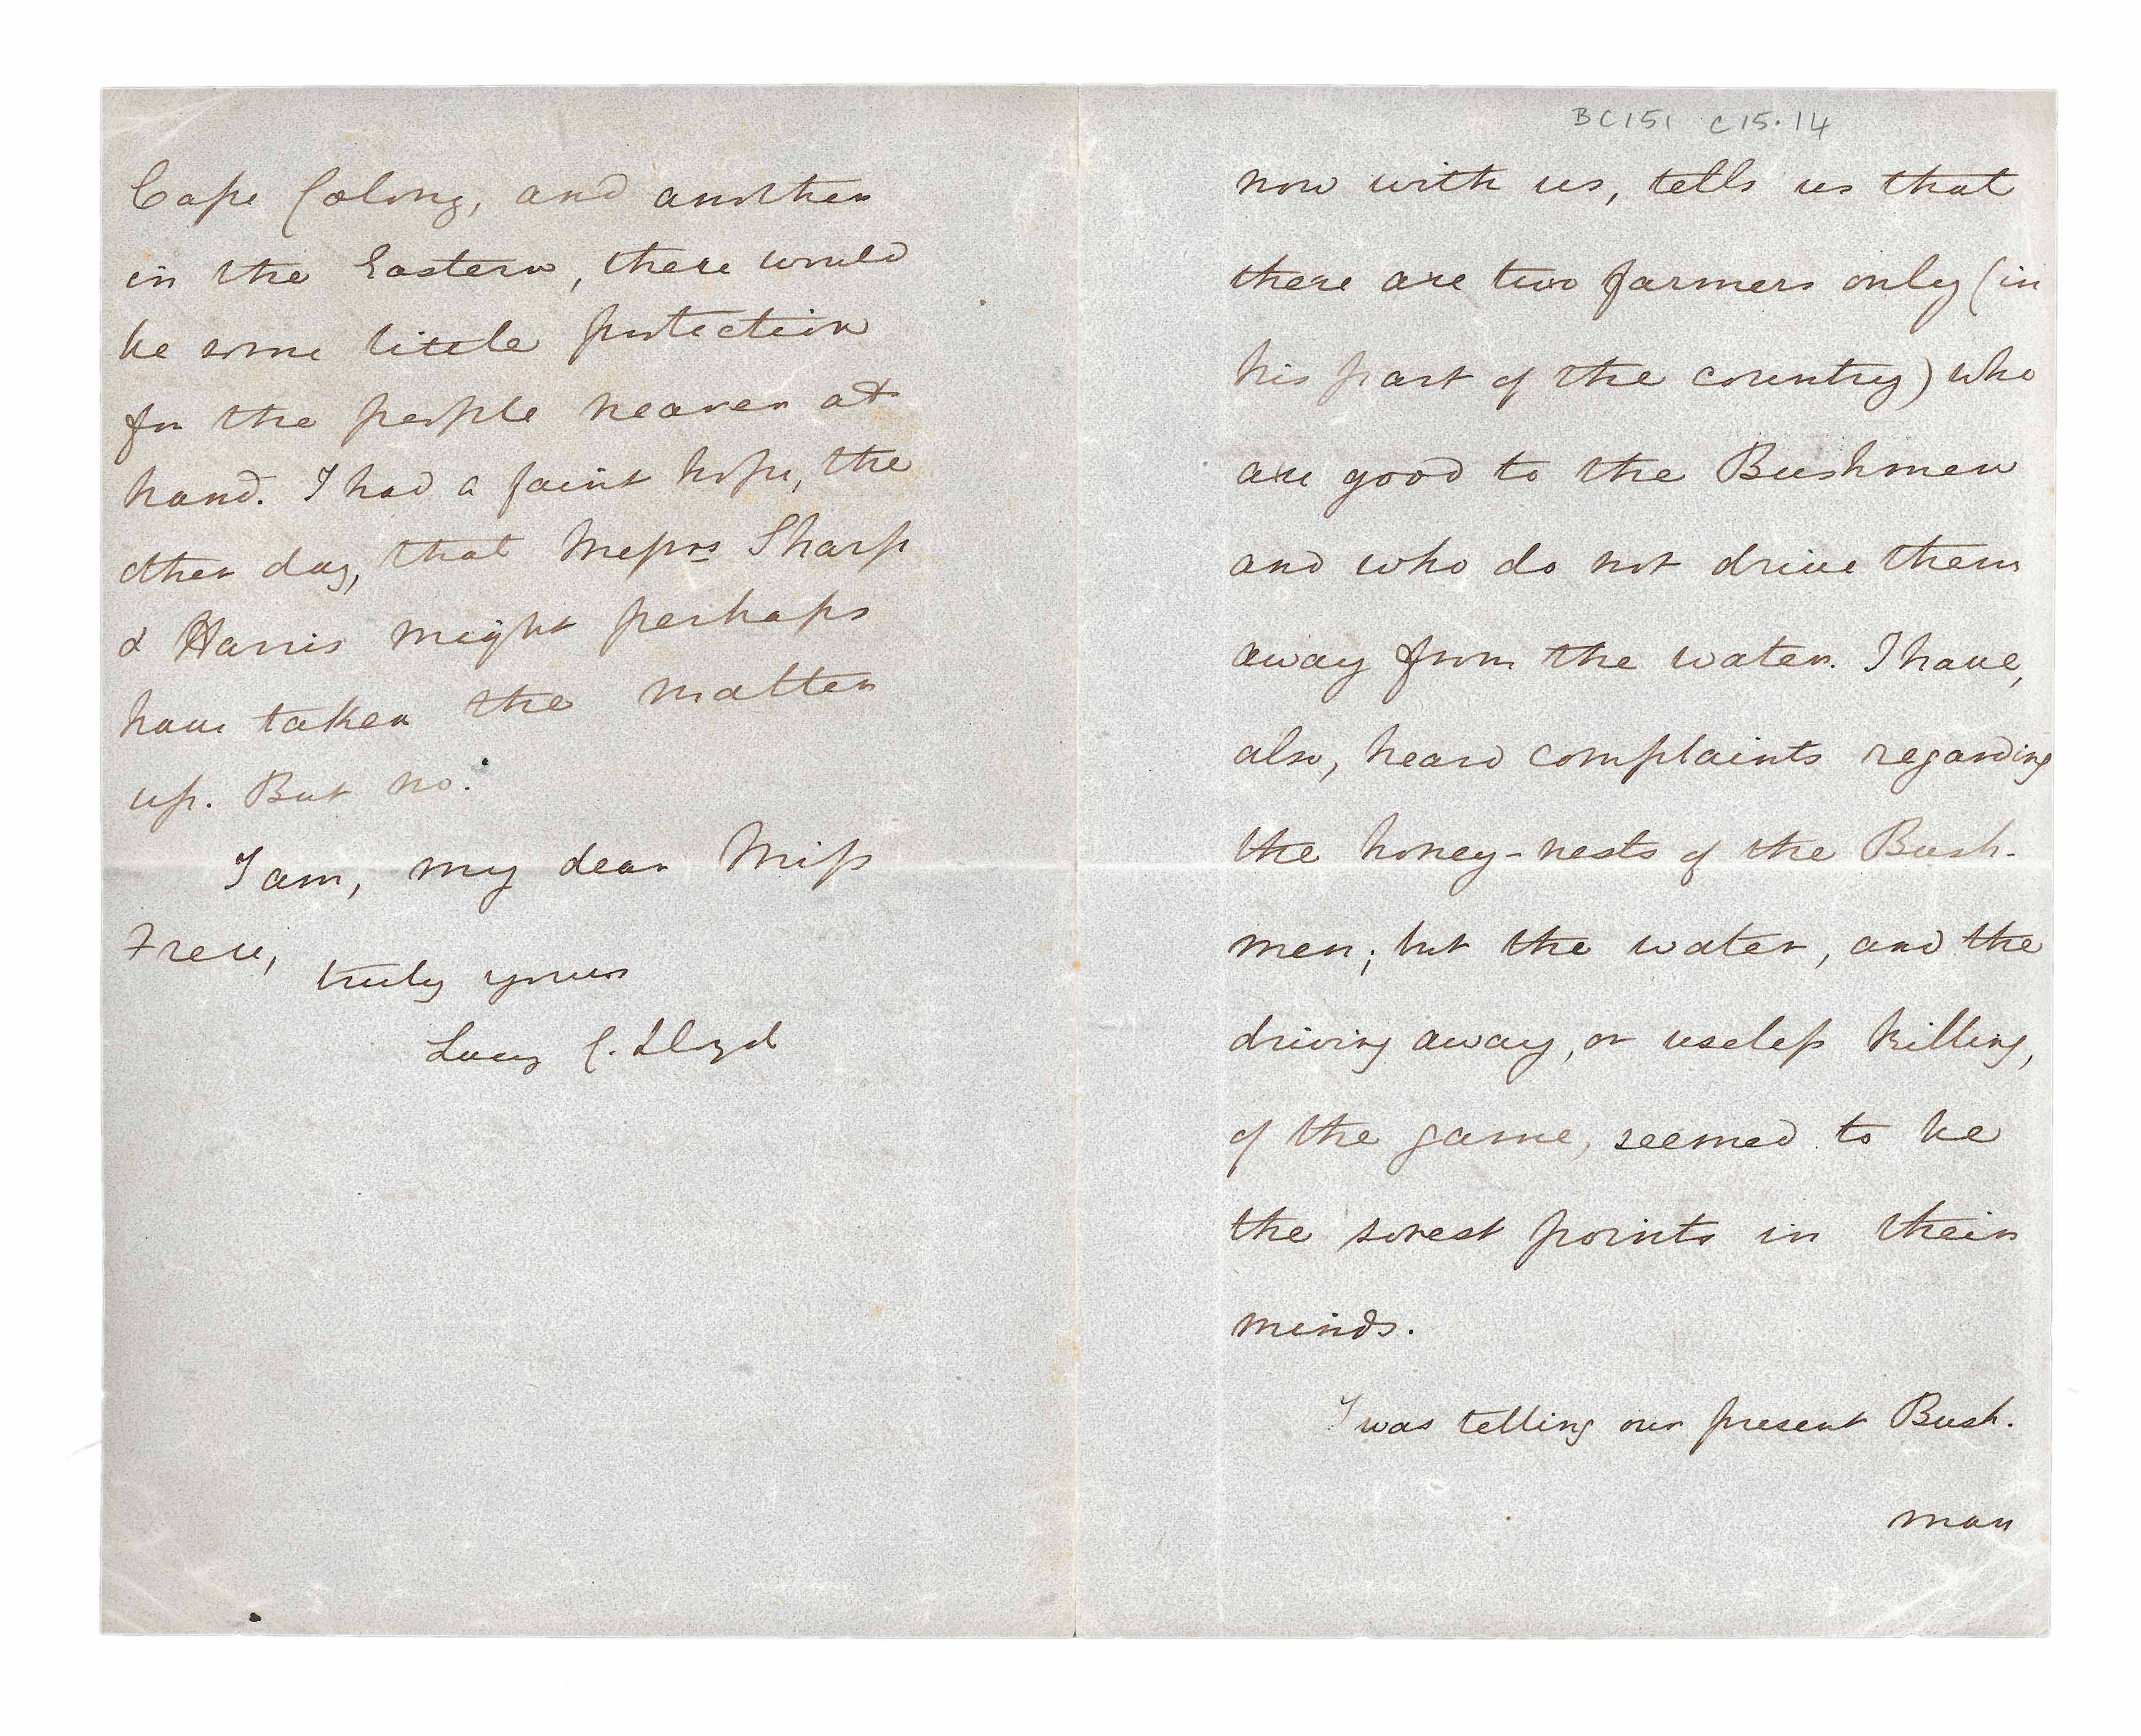 Cape Colony, and another
in the Eastern, there would
be some little protection
for the people nearer at
hand. I had a faint hope, the
other day, that Messrs Sharp
& Harris might perhaps
have taken the matter
up. But no.
I am, my dear Miss
Frere,
truly yours
Lucy C. Lloyd
BC151 C15.14
now with us, tells us that
there are two farmers only (in
his part of the country) who
are good to the Bushmen
and who do not drive them
away from the water. I have,
also, heard complaints regarding
the honey-nests of the Bush-
men; but the water, and the
driving away, or useless killing,
of the game, seemed to be
the sorest points in their
minds.
I was telling our present Bush-
man